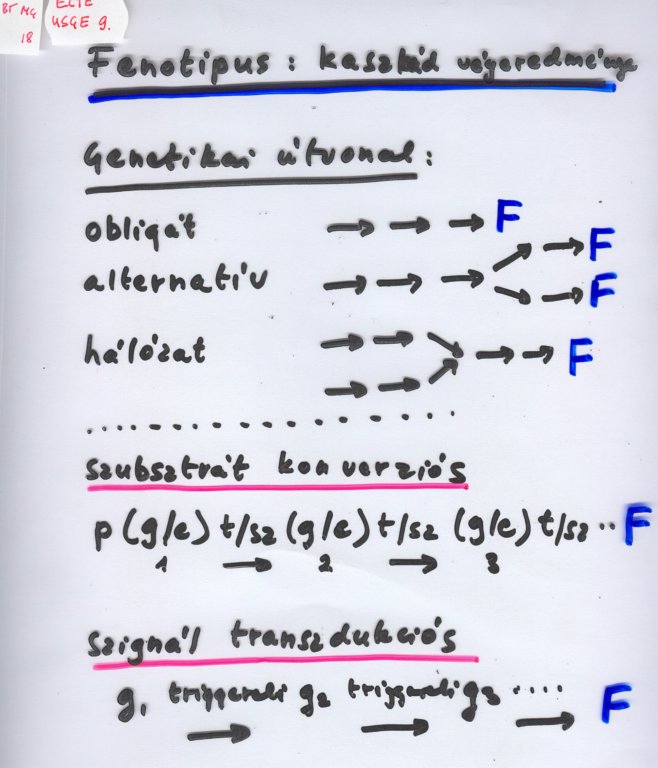 BT MG
18
ELTE
USGE 9.
Fenotípus: kaszkád végeredménye
Genetikai útvonal:
obligát → → → F
alternatív → → → → F
→ F
hálózat → → → → F
→ →
szubsztrát konverziós
p (g/e) t/sz (g/e) t/sz (g/e) t/sz ·· F
1 → 2 → 3
szignál transzdukciós
g1 triggereli g2 triggereli g3 ···· F
→ → →